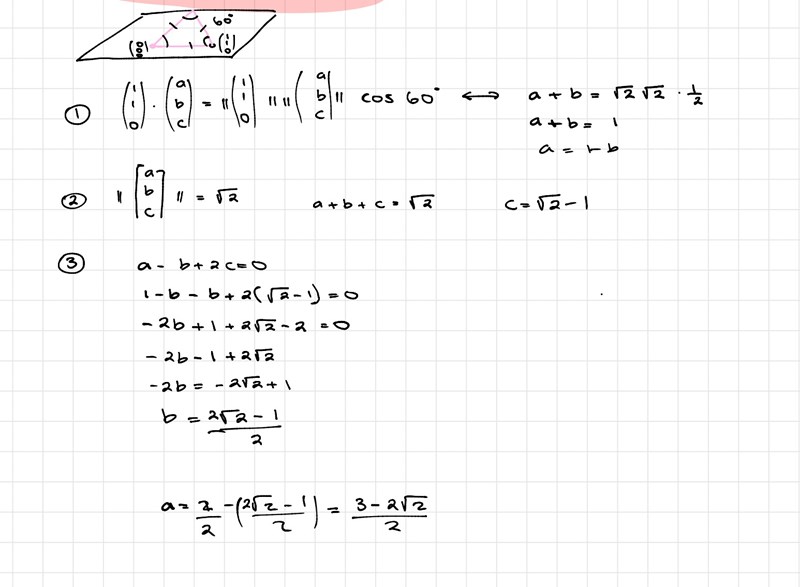 60°
(0 0 0) (1 1 0)
① (1 1 0) · (a b c) = ||(1 1 0)|| ||(a b c)|| cos 60° ⟷ a + b = √2 √2 · 1/2
a + b = 1
a = 1 - b
② ||[a b c]|| = √2 a + b + c = √2 c = √2 - 1
③ a - b + 2c = 0
1 - b - b + 2(√2 - 1) = 0
-2b + 1 + 2√2 - 2 = 0
-2b - 1 + 2√2
-2b = -2√2 + 1
b = (2√2 - 1)/2
a = 2/2 - ((2√2 - 1)/2) = (3 - 2√2)/2